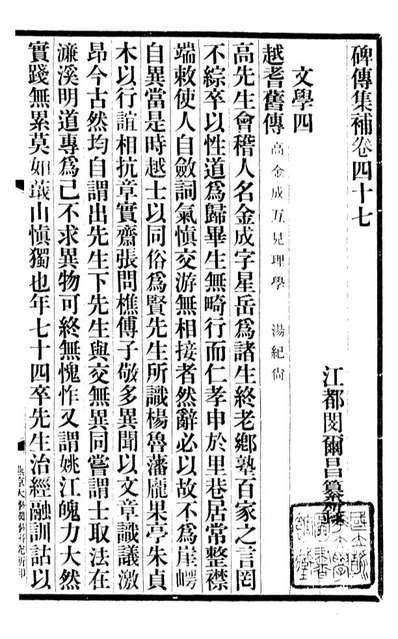 碑傳集補卷四十七
江都閔爾昌纂錄
文學四
越耆舊傳 高金成互見理學 湯紀尚
高先生會稽人名金成字星岳爲諸生終老鄉塾百家之言罔
不綜卒以性道爲歸畢生無畸行而仁孝申於里巷居常整襟
端敕使人自斂詞氣慎交游無相接者然辭必以故不爲崖崿
自異當是時越士以同俗爲賢先生所識楊魯藩龐果亭朱貞
木以行誼相抗章實齋張問樵傅子敬多異聞以文章識議激
昂今古然均自謂出先生下先生與交無異同嘗謂士取法在
濂溪明道專爲己不求異物可終無愧怍又謂姚江魄力大然
實踐無累莫如蕺山慎獨也年七十四卒先生治經融訓詁以
燕京大學國學研究所印